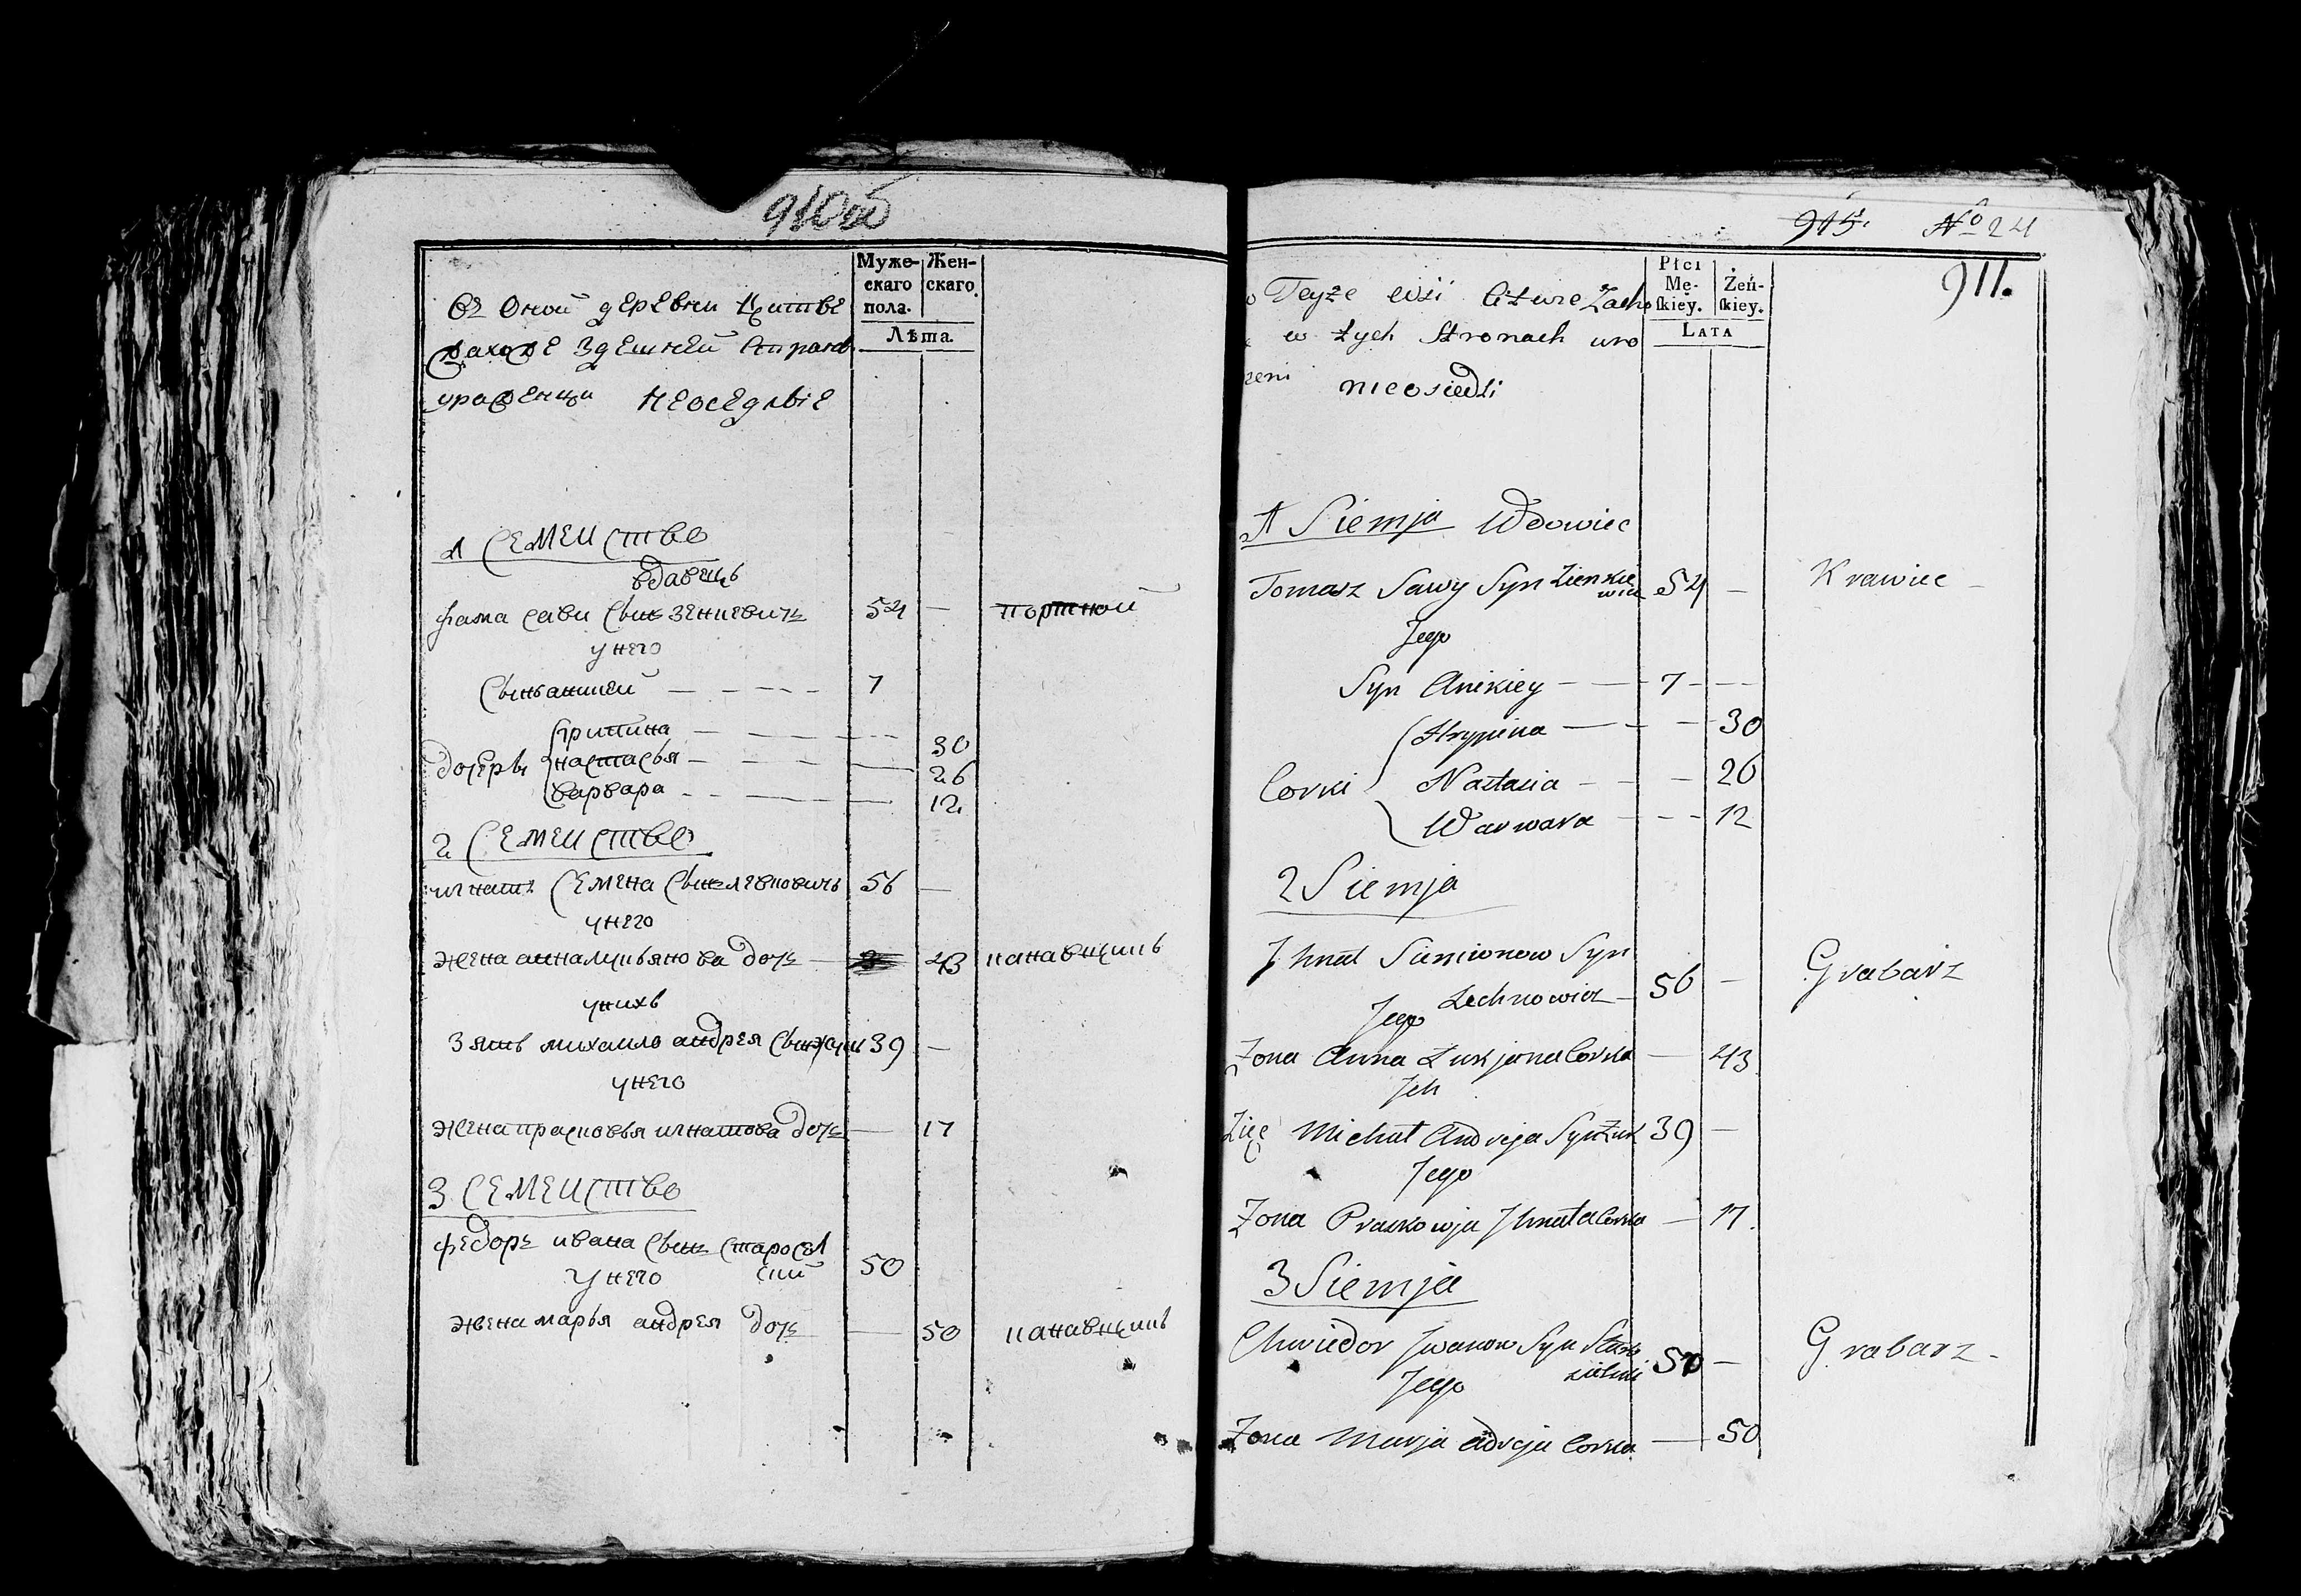 910об
Муже-
скаго
пола.
Жен-
скаго
Лѣта.
Въ Оной деревни Цитве
Захоже здешней Старон
уроженци неоседлые
1 Семейство
вдавецъ
фама Сави Сынъ Зенкевичъ 54 — портной
у него
Сынъ аникей — — — — 7
Грипина — — — — 30
дочеры настасья — — — — 26
варвара — — — — 12
2 Семейство
игнатъ Семена Сынъ лехновичъ 56 —
у него
жена анна лукьянова дочь — 43 канавщикъ
у нихъ
Зять михайло андрея Сынъ жукъ 39 —
у него
жена прасковья игнатова дочь — 17
3 Семейство
федоръ ивана Сынъ Старосел
ский 50
у него
жена марья андрея дочь — 50 канавщикъ
915. No 24
911.
Płci
Mę-
skiey.
Żeń-
skiey.
LATA
Teyże wsi Citwe Zacho
w tych Stronach uro
zeni nieosiedli
1 Siemja Wdowiec
Tomasz Sawy Syn Zienkie
wicz 54 — Krawiec —
Jego
Syn Anikiey — — 7 — — —
Hrypina — — — 30
Corki Nastasia — — — 26
Warwara — — — 12
2 Siemja
Jhnat Siemionow Syn
Lechnowicz — 56 — Grabarz
Jego
Zona Anna Lukjana Corka — 43
Jch
Zięć Michał Andreja Syn Żuk 39 —
Jego
Zona Praskowja Jhnata Corka — 17.
3 Siemja
Chwiedor Jwanow Syn Staro
sielski 50 — Grabarz —
Jego
Zona Marja Adreja Corka — 50